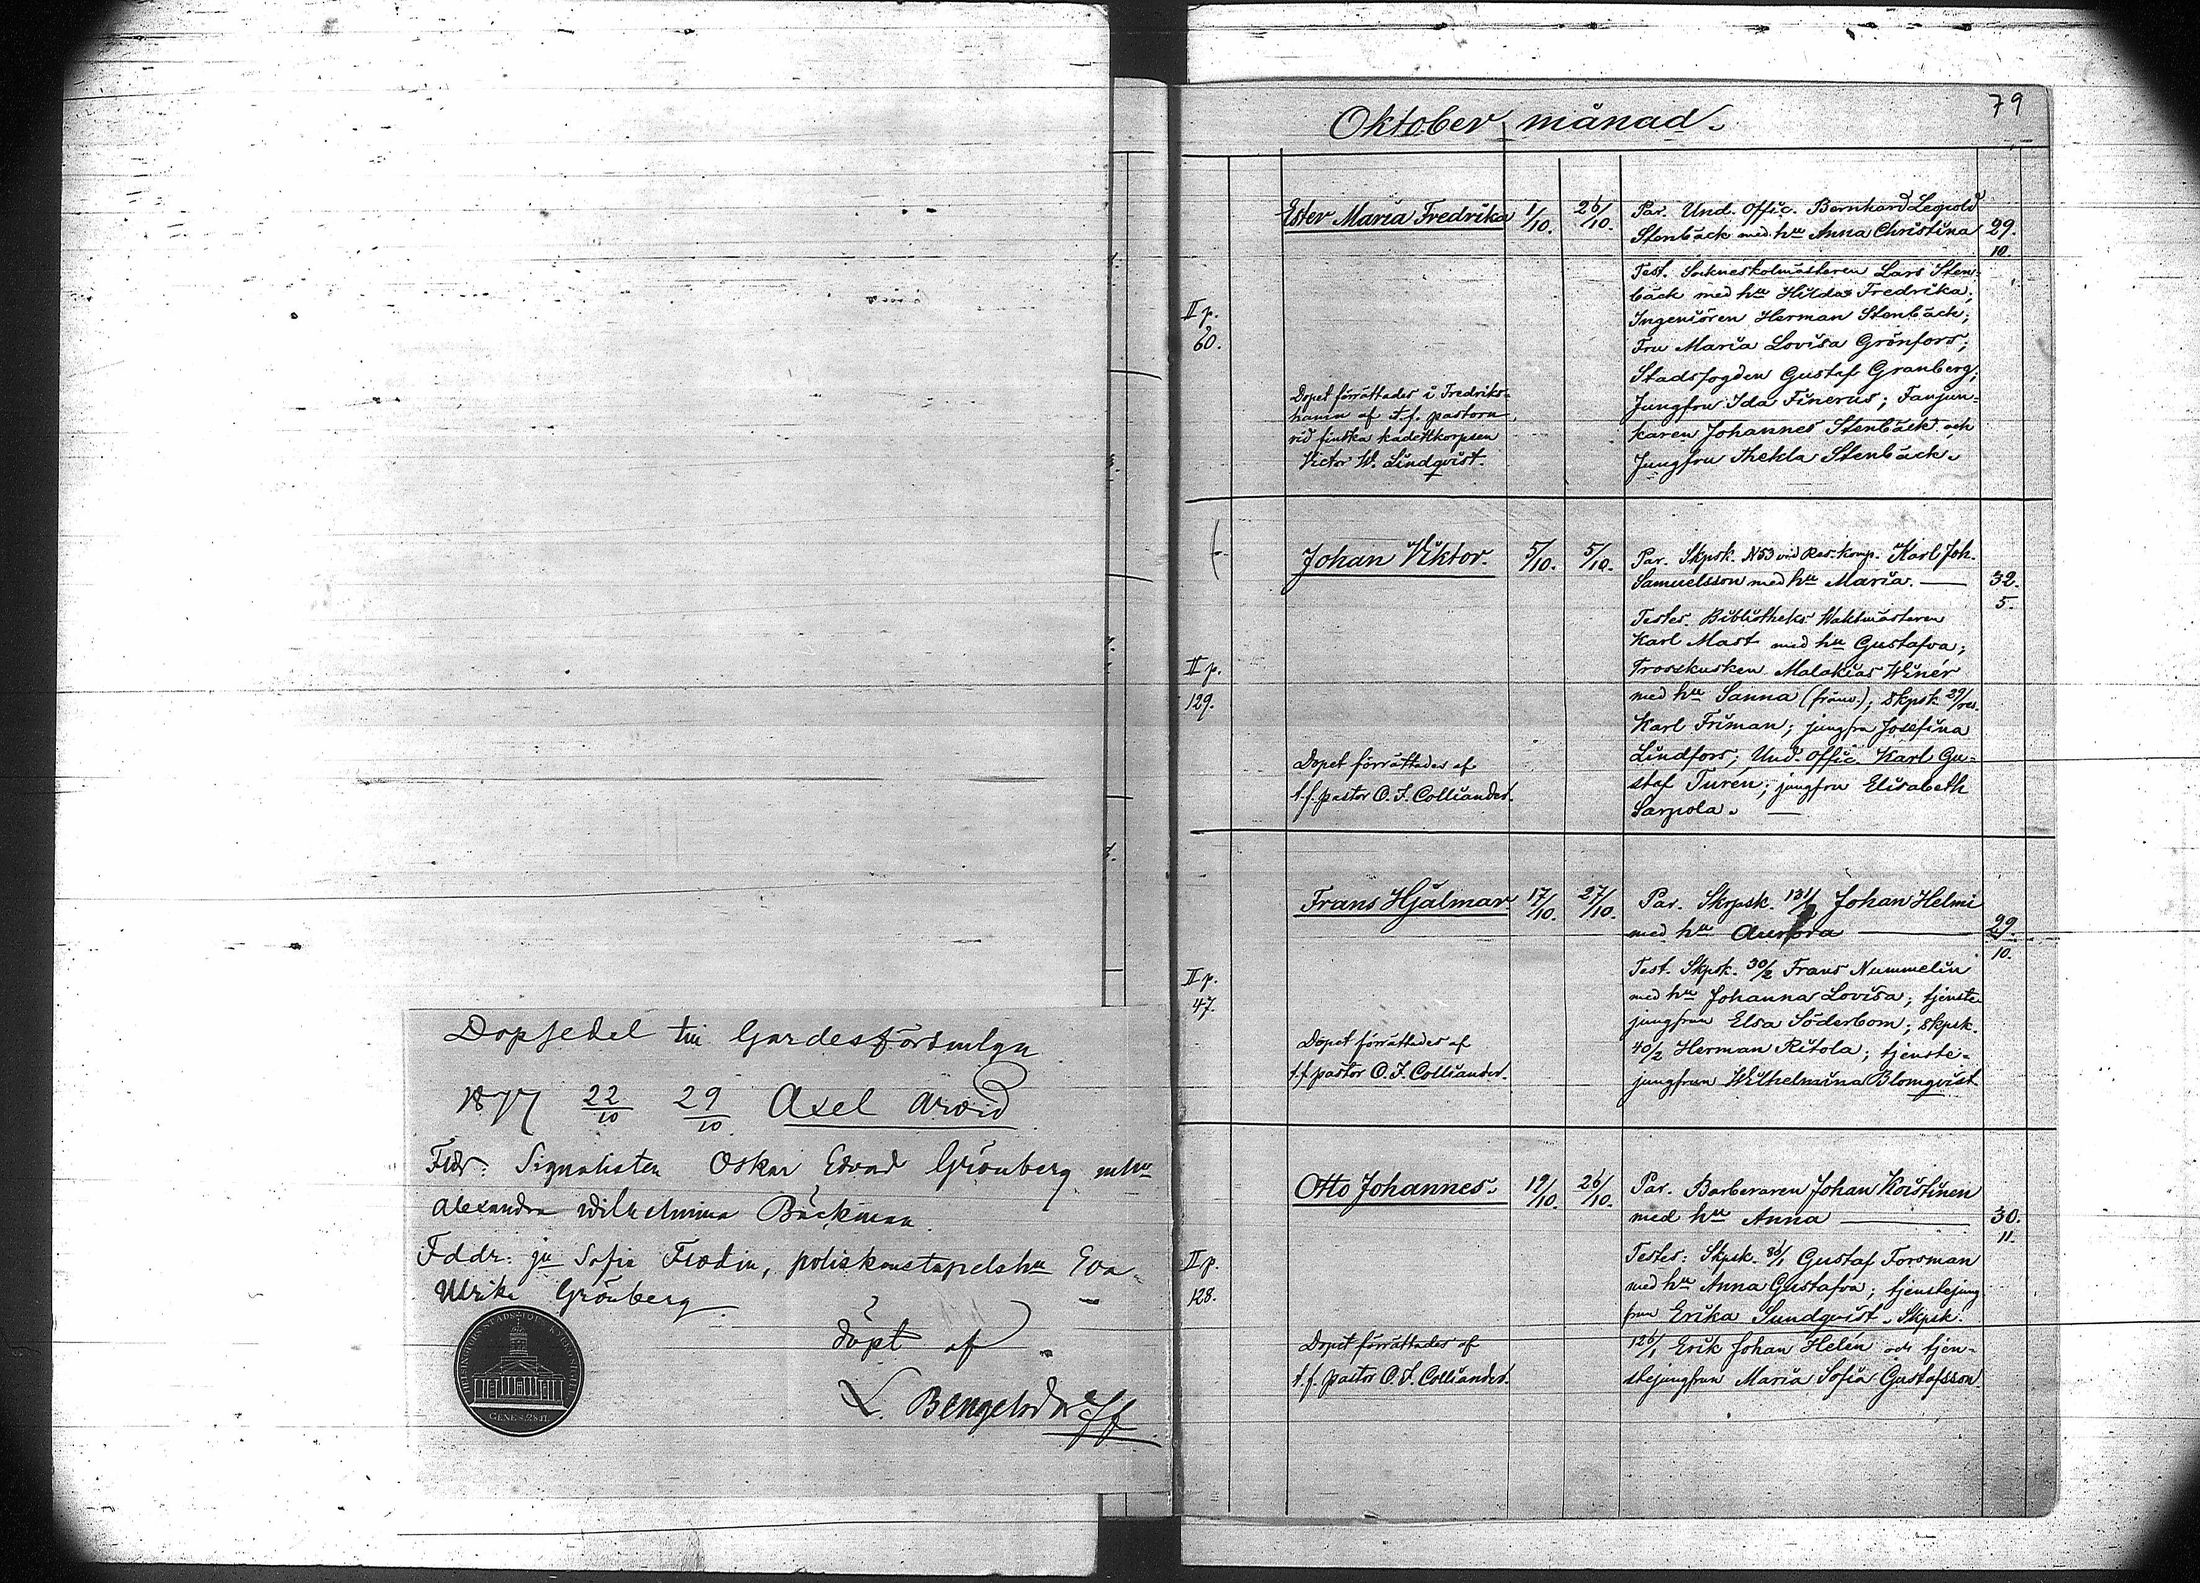 Dopsedel till Gardesförsmlgn
1877 22/10 29/10 Axel Arvid
Fldr: Signalisten Oskar Edvard Grönberg m hu
Alexandra Wilhelmina Bäckman.
Fddr: ju Sofia Flodin, poliskonstapelshu Eva
Ulrika Grönberg
döpt af
L. Bengelsdorff
79
Oktober månad.
Ester Maria Fredrika 1/10. 26/10. Par. Und. Offic. Bernhard Leopold
Stenbäck med hu Anna Christina 29.
10.
Test. Sockneskolmästeren Lars Sten=
bäck med hu Hilda Fredrika;
II p. Ingeniören Herman Stenbäck;
60. Fru Maria Lovisa Grönfors;
Stadsfogden Gustaf Granberg;
Dopet förrättades i Fredriks= Jungfru Ida Finerus; Fanjun=
hamn af t.f. pastorn karen Johannes Stenbäck och
vid finska kadettkorpsen Jungfru Thekla Stenbäck.
Victor W. Lindqvist.
Johan Viktor. 5/10. 5/10. Par. Skpsk. N53 vid Res. komp. Karl Joh.
Samuelsson med hu Maria. 32.
5.
Testes. Bibliotheks Waktmästeren
Karl Mast med hu Gustafva;
II p. Trosskusken Malakias Winér
129. med hu Sanna (frånv.); skpsk 29/res.
Karl Friman; jungfru Josefina
Lindfors; Und. offic. Karl Gu=
Dopet förrättades af staf Turén; jungfru Elisabeth
t.f. pastor O. I. Colliander. Sarpola.
Frans Hjalmar 17/10. 27/10. Par. Skrpsk. 131/ Johan Helmi
med hu Aurora 29.
10.
II p. Test. Skpsk. 30/2 Frans Nummelin
47. med hu Johanna Lovisa; tjenste
jungfrun Elsa Söderbom; skpsk.
Dopet förrättades af 40/2 Herman Ritola; tjenste=
t.f. pastor O. I. Colliander. jungfrun Wilhelmina Blomqvist
Otto Johannes. 19/10. 26/10. Par. Barberaren Johan Koistinen
med hu Anna 30.
11.
II p. Testes: Skpsk. 86/1 Gustaf Forsman
128. med hu Anna Gustafva; tjenstejung
frun Erika Sundqvist. Skpsk.
Dopet förrättades af 126/1 Erik Johan Helén och tjen=
t.f. pastor O. I. Colliander. stejungfrun Maria Sofia Gustafsson.